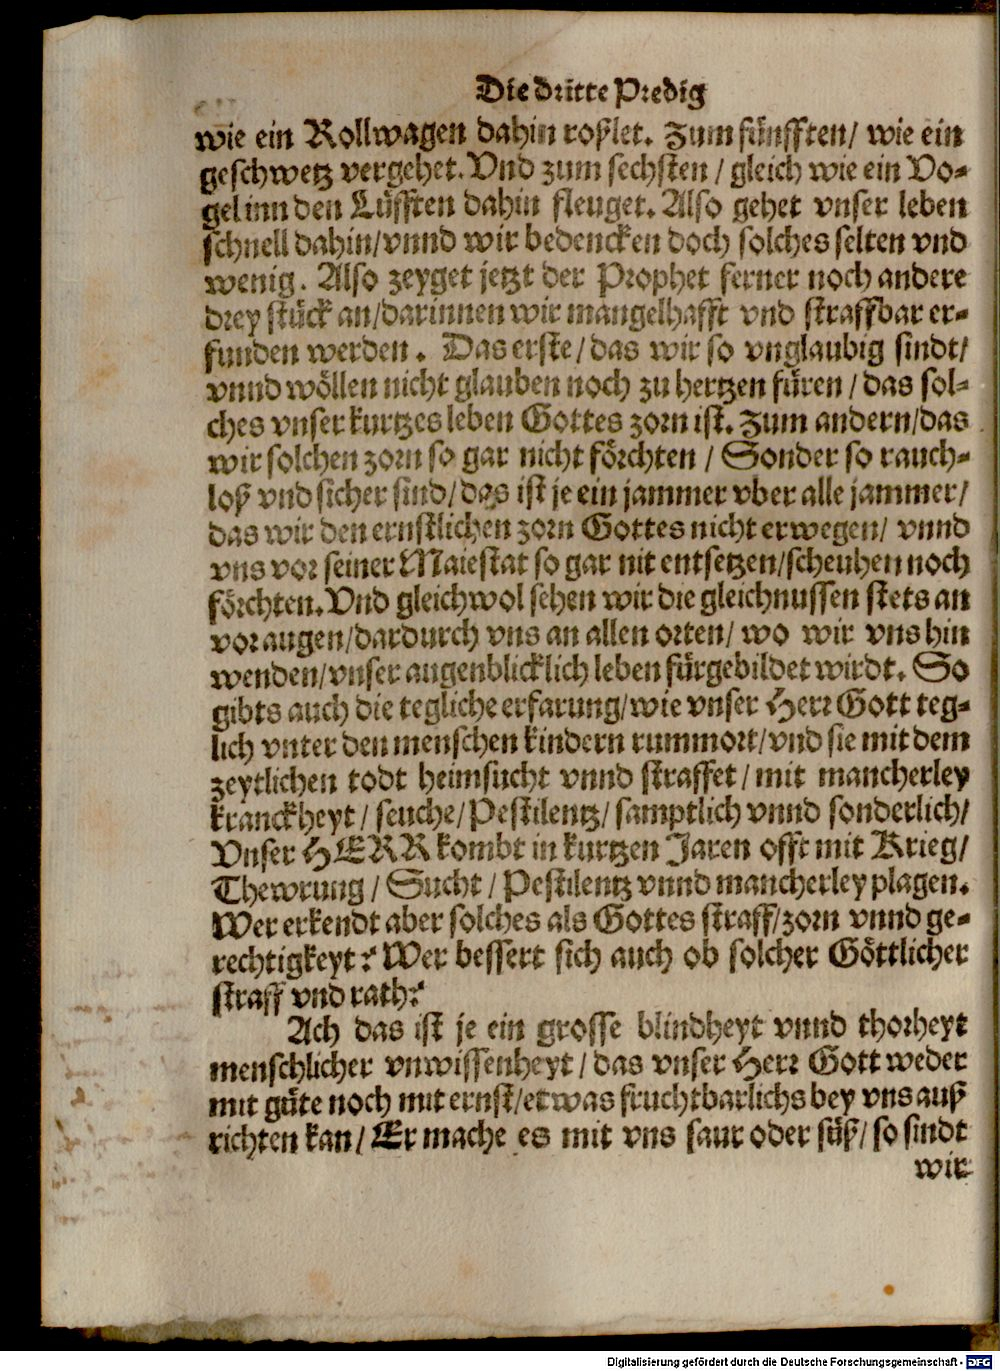 Die dritte Predig
wie ein Rollwagen dahin roßlet. Zum fünfften/ wie ein
geschwetz vergehet. Vnd zum sechsten / gleich wie ein Vo-
gel inn den Lüfften dahin fleuget. Also gehet vnser leben
schnell dahin/vnnd wir bedencken doch solches selten vnd
wenig. Also zeyget jetzt der Prophet ferner noch andere
drey stück an/darinnen wir mangelhafft vnd straffbar er-
funden werden. Das erste/das wir so vnglaubig sindt/
vnnd wöllen nicht glauben noch zu hertzen füren / das sol-
ches vnser kurtzes leben Gottes zorn ist. Zum andern/das
wir solchen zorn so gar nicht förchten / Sonder so rauch-
loß vnd sicher sind/das ist je ein jammer vber alle jammer/
das wir den ernstlichen zorn Gottes nicht erwegen/ vnnd
vns vor seiner Maiestat so gar nit entsetzen/scheuhen noch
förchten. Vnd gleichwol sehen wir die gleichnussen stets an
vor augen/dardurch vns an allen orten/ wo wir vns hin
wenden/vnser augenblicklich leben fürgebildet wirdt. So
gibts auch die tegliche erfarung/wie vnser Herr Gott teg-
lich vnter den menschen kindern rummort/vnd sie mit dem
zeytlichen todt heimsucht vnnd straffet/ mit mancherley
kranckheyt/ seuche/Pestilentz/ samptlich vnnd sonderlich/
Vnser HERR kombt in kurtzen Jaren offt mit Krieg/
Thewrung / Sucht / Pestilentz vnnd mancherley plagen.
Wer erkendt aber solches als Gottes straff/zorn vnnd ge-
rechtigkeyt? Wer bessert sich auch ob solcher Göttlicher
straff vnd rath?
Ach das ist je ein grosse blindheyt vnnd thorheyt
menschlicher vnwissenheyt / das vnser Herr Gott weder
mit güte noch mit ernst/etwas fruchtbarlichs bey vns auß
richten kan/ Er mache es mit vns saur oder süß/ so sindt
wir
Digitalisierung gefördert durch die Deutsche Forschungsgemeinschaft - DFG